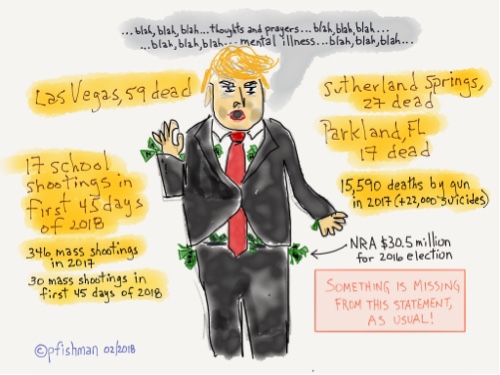 ...blah, blah, blah...thoughts and prayers...blah, blah, blah...
...blah, blah, blah...mental illness...blah, blah, blah...
Las Vegas, 59 dead
Sutherland Springs,
27 dead
Parkland, FL
17 dead
17 school
shootings in
first 45 days
of 2018
346 mass shootings
in 2017
30 mass shootings in
first 45 days of 2018
15,590 deaths by gun
in 2017 (+22,000 suicides)
NRA $30.5 million
for 2016 election
SOMETHING IS MISSING
FROM THIS STATEMENT,
AS USUAL!
©pfishman 02/2018